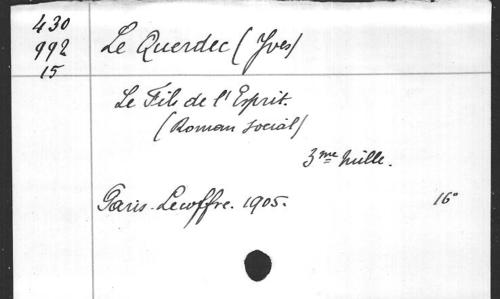 430
992
15
Le Querdec (Yves)
Le Fils de l'Esprit.
(Roman social)
3me mille.
Paris. Lecoffre. 1905.
16°